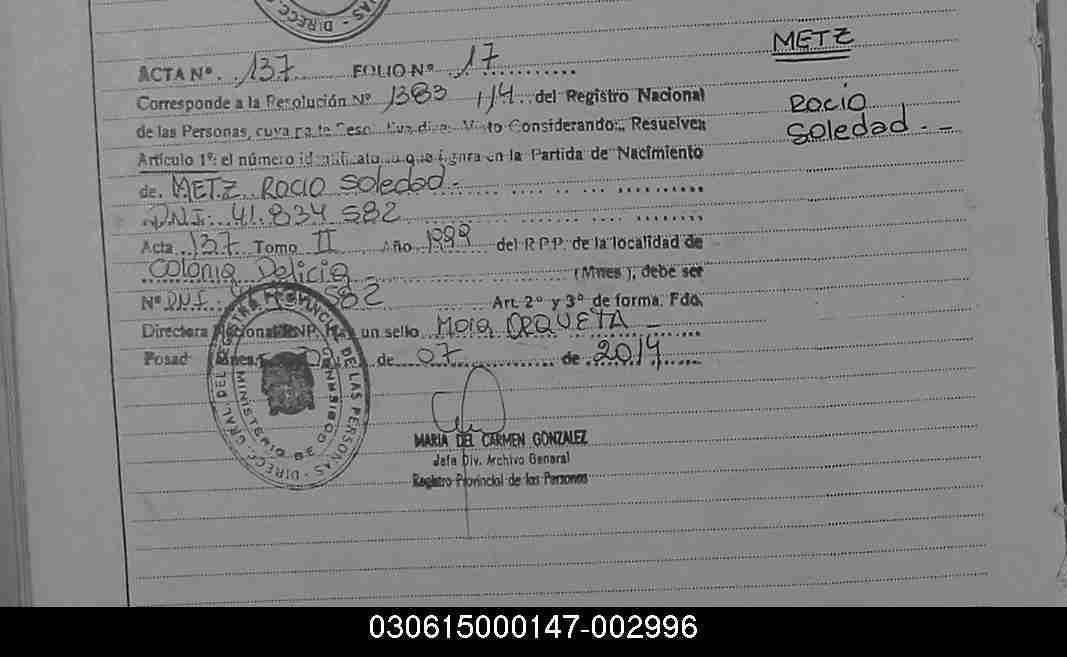 ACTA Nº. 137 FOLIO Nº 17
METZ
Rocio
Soledad.-
Corresponde a la Resolución Nº 1383 /14 del Registro Nacional
de las Personas, cuya parte Visto Considerando: Resuelve:
Artículo 1º: el número que figura en la Partida de Nacimiento
de. METZ Rocio Soledad.-
D.N.I. 41.834 582
Acta 137 Tomo II Año 1999 del R.P.P. de la localidad de
Colonia Delicia (Mnes), debe ser
Nº DNI 582 Art. 2º y 3º de forma. Fdo.
Directora Nacional RNP. Hay un sello Mora ORQUETA
Posad de 07 de 2014
MINISTERIO DE GOBIERNO
MARIA DEL CARMEN GONZALEZ
Jefa Div. Archivo General
Registro Provincial de las Personas
030615000147-002996